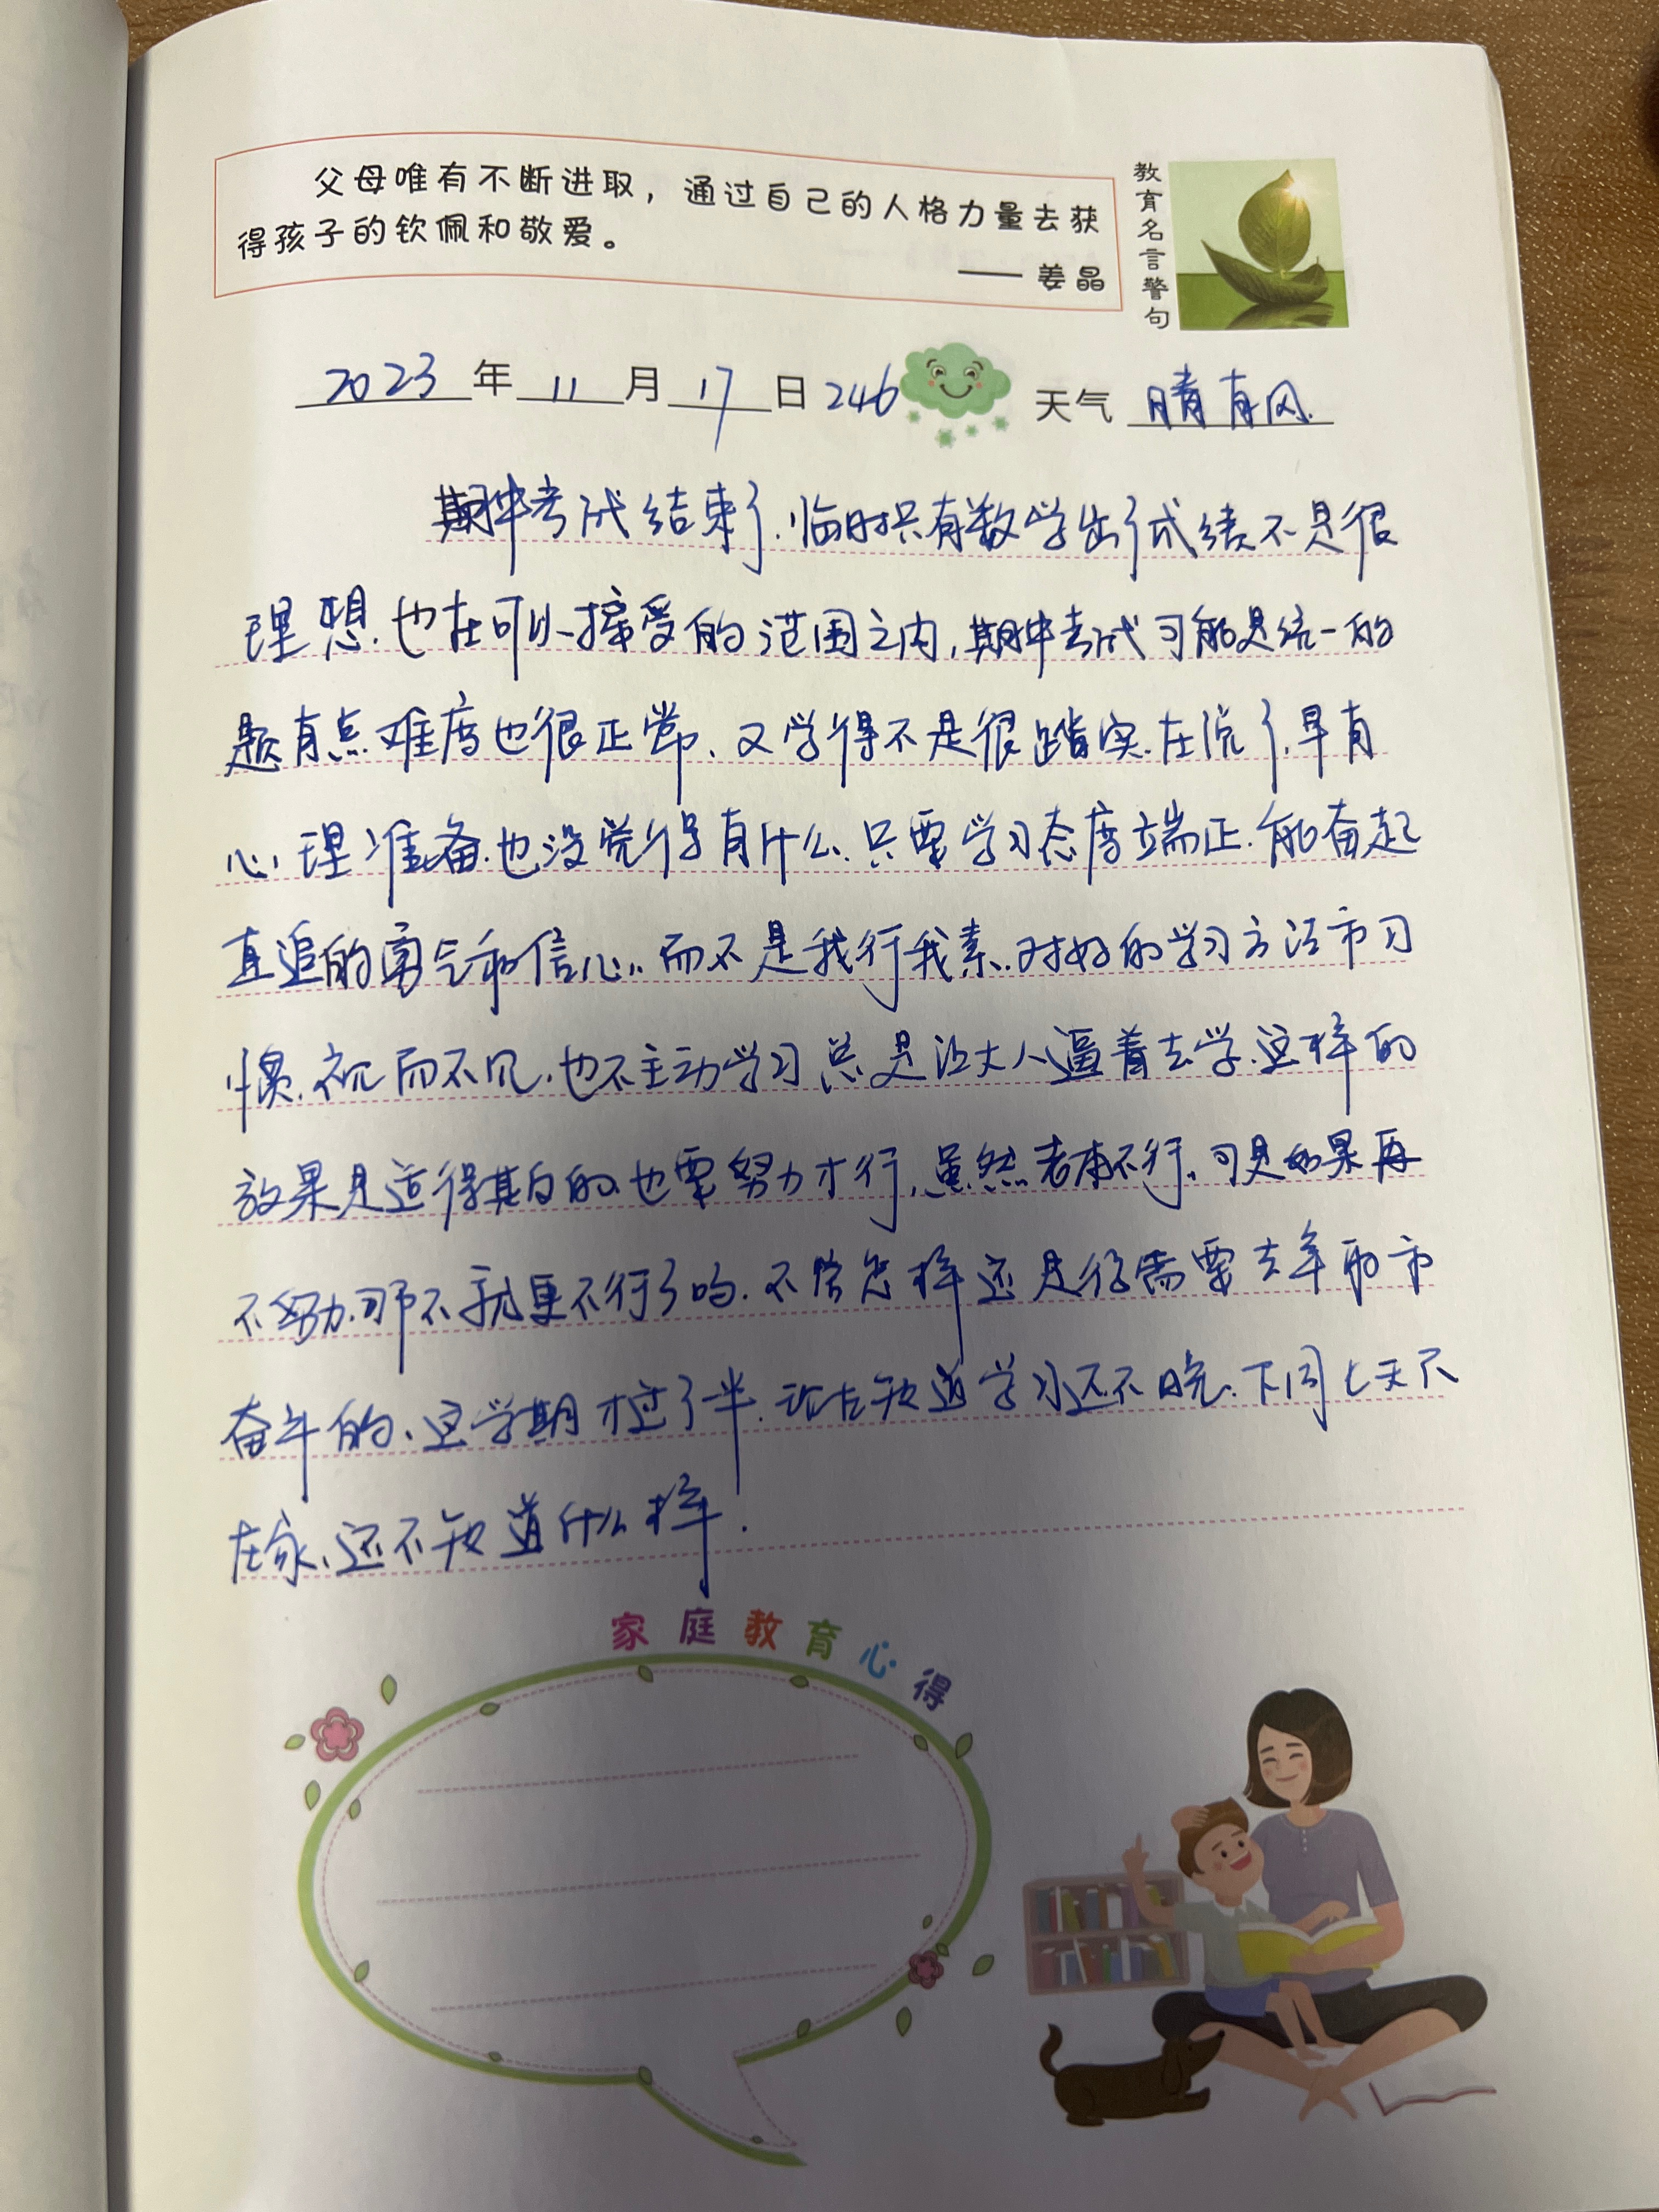 父母唯有不断进取，通过自己的人格力量去获
得孩子的钦佩和敬爱。
—— 姜晶
教育名言警句
2023年11月17日 246 天气 晴有风.
期中考试结束了.临时只有数学出了成绩不是很
理想.也在可以接受的范围之内,期中考试可能是统一的
题有点难度也很正常、又学得不是很踏实.在说了.早有
心理准备.也没觉得有什么.只要学习态度端正.能奋起
直追的勇气和信心.而不是我行我素.对好的学习方法和习
惯.视而不见.也不主动学习总是让大人逼着去学.这样的
效果是适得其反的.也要努力才行,虽然老本不行.可是如果再
不努力.那不就更不行了吗.不管怎样还是得需要去争取和
奋斗的、这学期才过了一半.现在知道学习还不晚.下周七天不
在家、还不知道什么样.
家庭教育心得